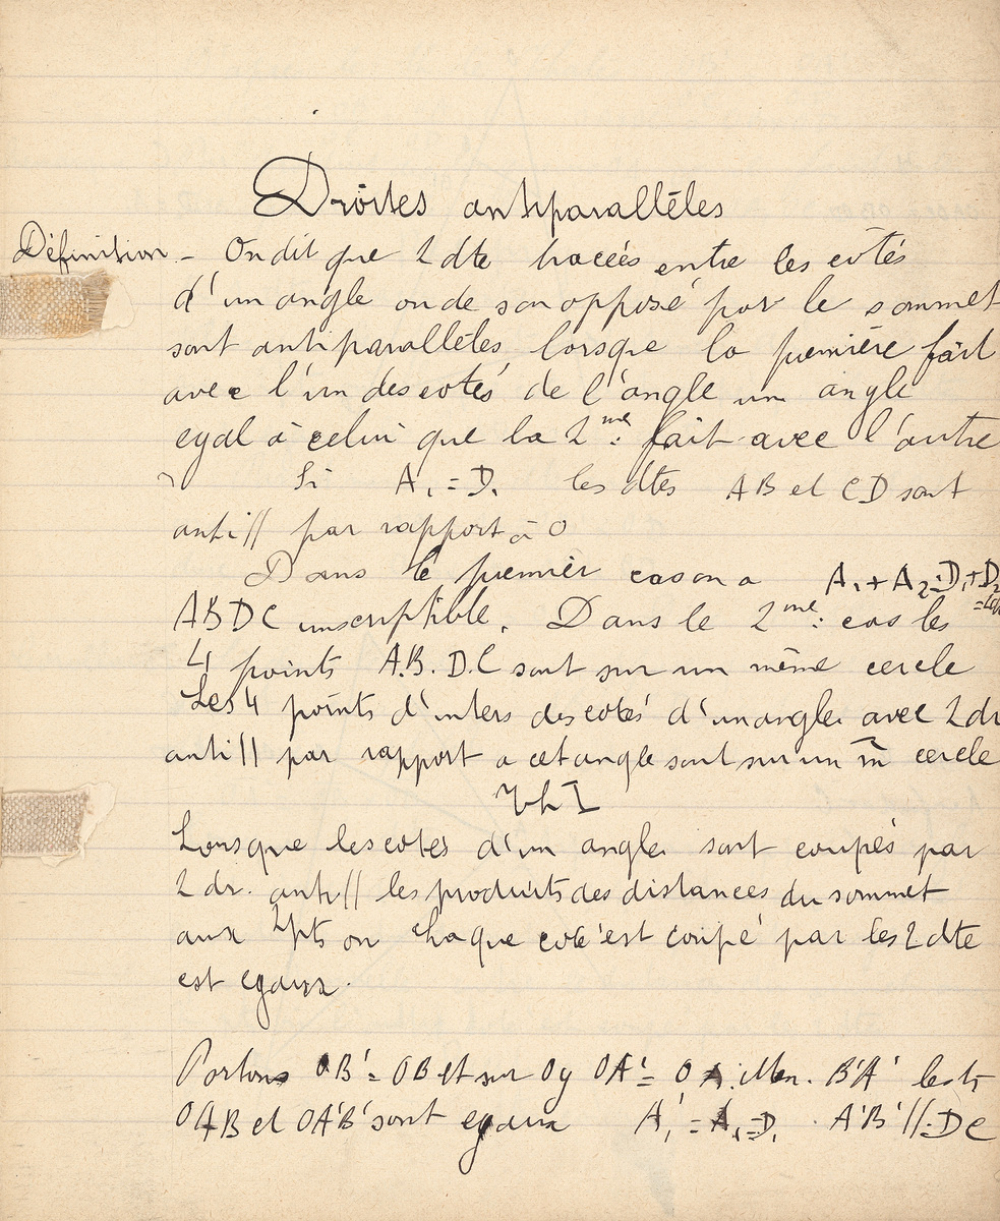 Droites antiparallèles
Définition - On dit que 2 dte tracées entre les côtés
d'un angle ou de son opposé par le sommet
sont antiparallèles lorsque la première fait
avec l'un des cotés de l'angle un angle
egal à celui que la 2me: fait avec l'autre
Si A₁ = D₁ les dtes AB et CD sont
anti// par rapport à O
Dans le premier cas on a A₁ + A₂ = D₁ + D₂
ABDC inscriptible. Dans le 2me: cas les
4 points A.B.D.C sont sur un même cercle
Les 4 points d'inters des cotés d'un angle avec 2 dr
anti// par rapport a cet angle sont sur un m̄ cercle
Th I
Lorsque les cotés d'un angle sont coupés par
2 dr. anti// les produits des distances du sommet
aux 2 pts ou chaque coté est coupé par les 2 dte
est egaux.
Portons OB' = OB et sur Oy OA' = OA. Men. B'A' les ts
OAB et OA'B' sont egaux A'₁ = A₁ = D₁ . A'B' // DC